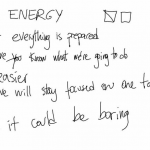 ENERGY
everything is prepared
you know what we're going to do
easier
we will stay focused on one
it could be boring